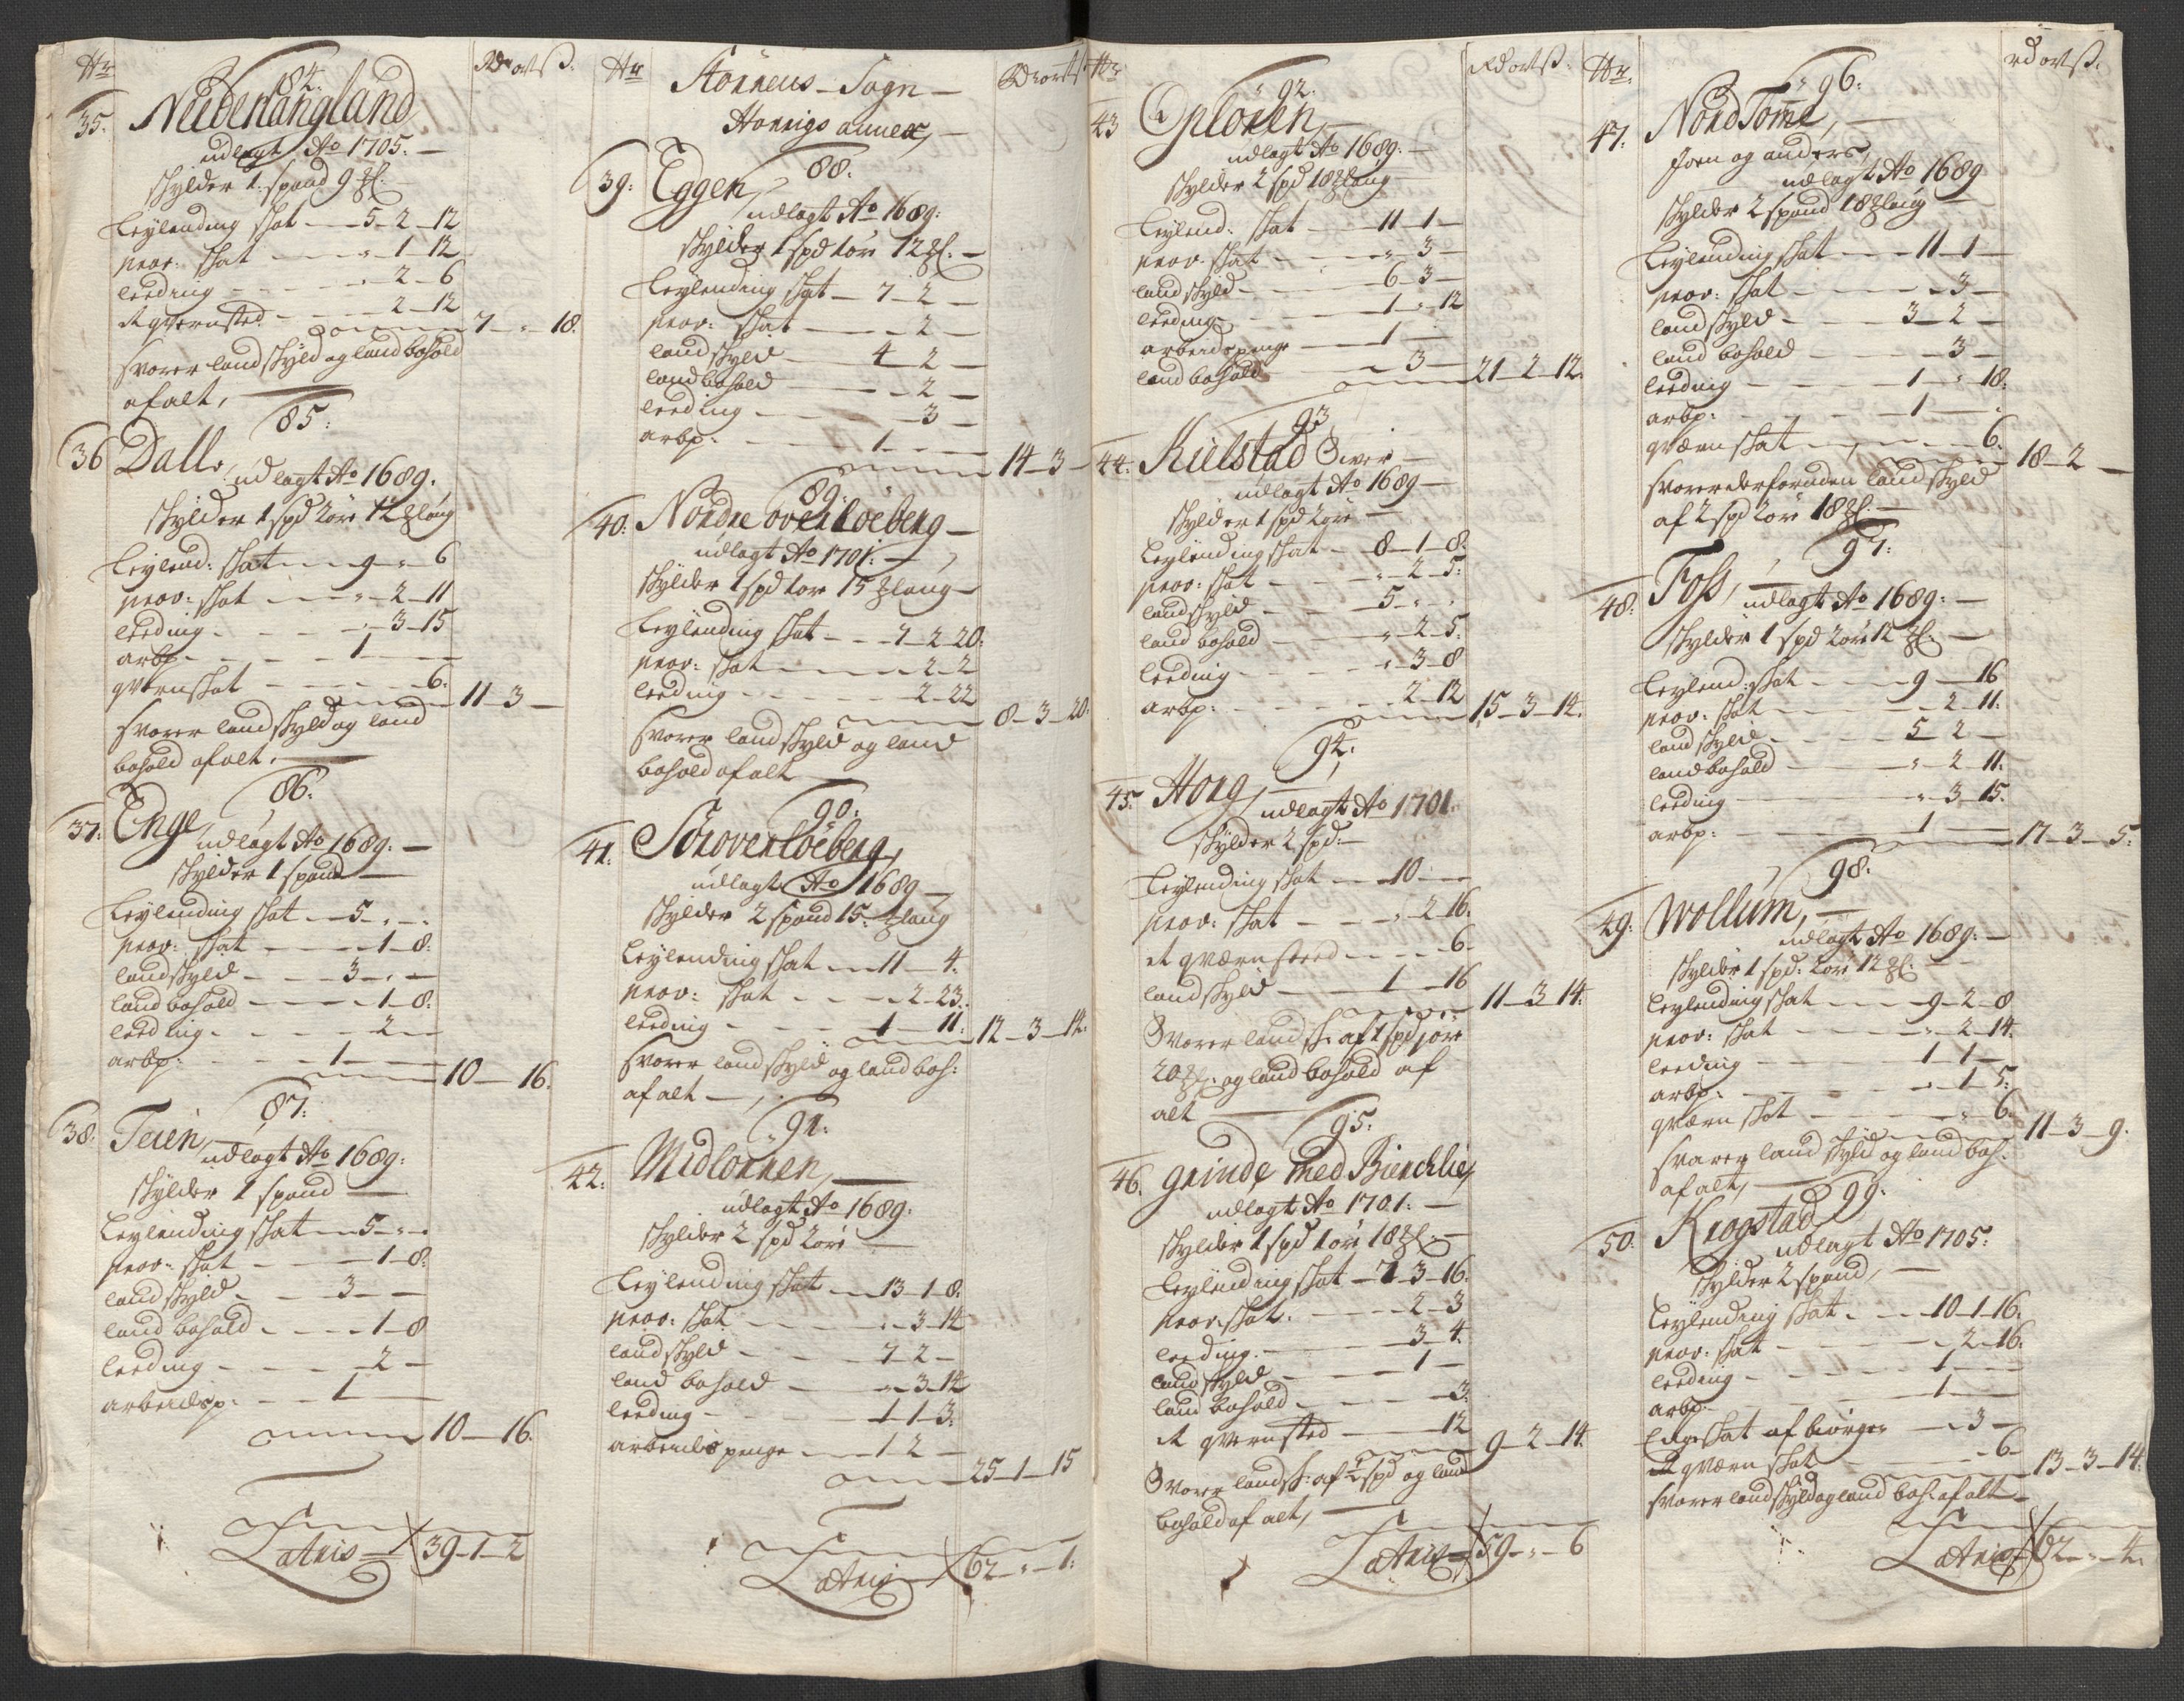 Nr
Rdr ort ß.
84.
35. Nedenangland
udlagt Ao 1705.
skylder 1 spand 9 ℔.
Leylending skat 5 - 2 - 12
prov: skat 1 - 12
leeding 2 - 6
it qvernsted 2 - 12
7 - " - 18.
svarer landskyld og land bohold
af alt,
85.
36 Dall, udlagt Ao 1689.
skylder 1 spd 2 ör 12 ℔ laug
Leylend: skat 9 - " - 6
prov: skat " - 2 - 11
leeding 3 - 15
arbp. 1
qvernskat 6.
11 - 3 -
svarer landskyld og land
bohold af alt.
86.
37. Enge, udlagt Ao 1689.
skylder 1 spand
Leylending skat 5 - " -
prov: skat 1 - 8.
landskyld 3 - " -
land bohold 1 - 8.
leeding 2 -
arbp. 1
10 - 16.
87.
38. Teien, udlagt Ao 1689.
skylder 1 spand
Leylending skat 5 - " -
prov: skat 1 - 8.
landskyld 3 -
land bohold 1 - 8
leeding 2 -
arbeidsp: 1
10 - 16.
Latris 39 - 1 - 2
Nr
Störrens Sogn
Horrigs annex,
88.
39. Eggen, udlagt Ao 1689.
skylder 1 spd 1 ör 12 ℔.
Leylending skat 7 - 2 -
prov: skat 2 -
landskyld 4 - 2 -
land bohold 2 -
leeding 3 -
arbp. 1
14 - 3 -
89.
40. Nordre overlöeberg
udlagt Ao 1701.
skylder 1 spd 1 ör 15 ℔ laug
Leylending skat 7 - 2 - 20.
prov: skat 2 - 2
leeding 2 - 22
8 - 3 - 20.
svarer landskyld og land
bohold af alt
90.
41. Söroverlöeberg,
udlagt Ao 1689
skylder 2 spand 15 ℔ laug
Leylending skat 11 - 4.
prov: skat 2 - 23.
leeding 1 - 11.
12 - 3 - 14.
svarer landskyld og land boh:
af alt
91.
42. Midlöxnen,
udlagt Ao 1689.
skylder 2 spd 2 ör
Leylending skat 13 - 1 - 8.
prov: skat 3 - 14
landskyld 7 - 2 -
land bohold 3 - 14
leeding 1 - 1 - 3.
arbeidspenge 1 - 2 -
25 - 1 - 15
Latris 62 - " - 1.
Nr
Rd ort ß.
92.
43 Oplöxen,
udlagt Ao 1689.
skylder 2 spd 18 ℔ laug
Leylend: skat 11 - 1 -
prov: skat 3 -
landskyld 6 - 3 -
leeding 1 - " - 12
arbeidspenge 1 -
land bohold 3 -
21 - 2 - 12.
93
44. Kielstad Over
udlagt Ao 1689
skylder 1 spd 2 ör
Leylending skat 8 - 1 - 8.
prov: skat " - 2 - 5.
landskyld 5 - "
land bohold 2 - 5.
leeding 3 - 8
arbp: 2 - 12
15 - 3 - 14.
94.
45. Hong, udlagt Ao 1701.
skylder 2 spd.
Leylending skat 10
prov: skat 2 - 16.
et qværnsted 6
landskyld 1 - 16
11 - 3 - 14.
Svarer landsk: af 1 spd 1 ör
20 ℔. og land bohold af
alt
95.
46. grinde med Bierchlie,
udlagt Ao 1701.
skylder 1 spd 1 ör 18 ℔.
Leylending skat 7 - 3 - 16.
prov: skat 2 - 3
leeding 3 - 4.
landskyld 1 -
land bohold 3.
it qvernsted 12
9 - 2 - 14.
Svarer landsk: af 1/2 spd og land
bohold af alt,
Latris 59 - " - 6
Nr.
rd ort ß.
96.
47. Nord Tomme,
Joen og anders,
udlagt Ao 1689
skylder 2 spand 18 ℔ laug
Leylending skat 11 - 1 -
prov: skat 3 -
landskyld 3 - 2 -
land bohold 3 -
leeding 1 - " - 18.
arbp: 1
qværnskat 6.
18 - 2 -
svarer desforuden landskyld
af 2 spd 2 ör 18 ℔.
97.
48. Foss, udlagt Ao 1689.
skylder 1 spd 2 ör 12 ℔.
Leylend: skat 9 - 16
prov: skat 2 - 11.
landskyld 5 - 2 -
land bohold " - 2 - 11.
leeding " - 3 - 15.
arbp: 1
17 - 3 - 5.
98.
49. Wollum,
udlagt Ao 1689.
skylder 1 spd: 2 ör 12 ℔.
Leylending skat 9 - 2 - 8
prov: skat 2 - 14.
leeding 1 - 1 -
arbp. 1 - 5.
qværnskat 6.
11 - 3 - 9.
svarer landskyld og land boh:
af alt,
99.
50. Krogstad,
udlagt Ao 1705.
skylder 2 spand,
Leylending skat 10 - 1 - 16.
prov: skat 2 - 16.
leeding 1
arbp. 1
Engeskat af biørgen 3 -
et qværnskat 6 -
13 - 3 - 14.
svarer landskyld og land boh: af alt
Latris 62 - " - 4.